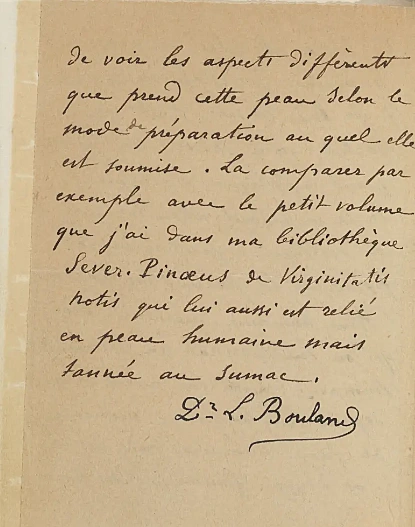 de voir les aspects différents
que prend cette peau selon le
mode de préparation au quel elle
est soumise. La comparer par
exemple avec le petit volume
que j'ai dans ma bibliothèque
Sever. Pinœus de Virginitatis
notis qui lui aussi est relié
en peau humaine mais
tannée au sumac.
Dr L. Bouland